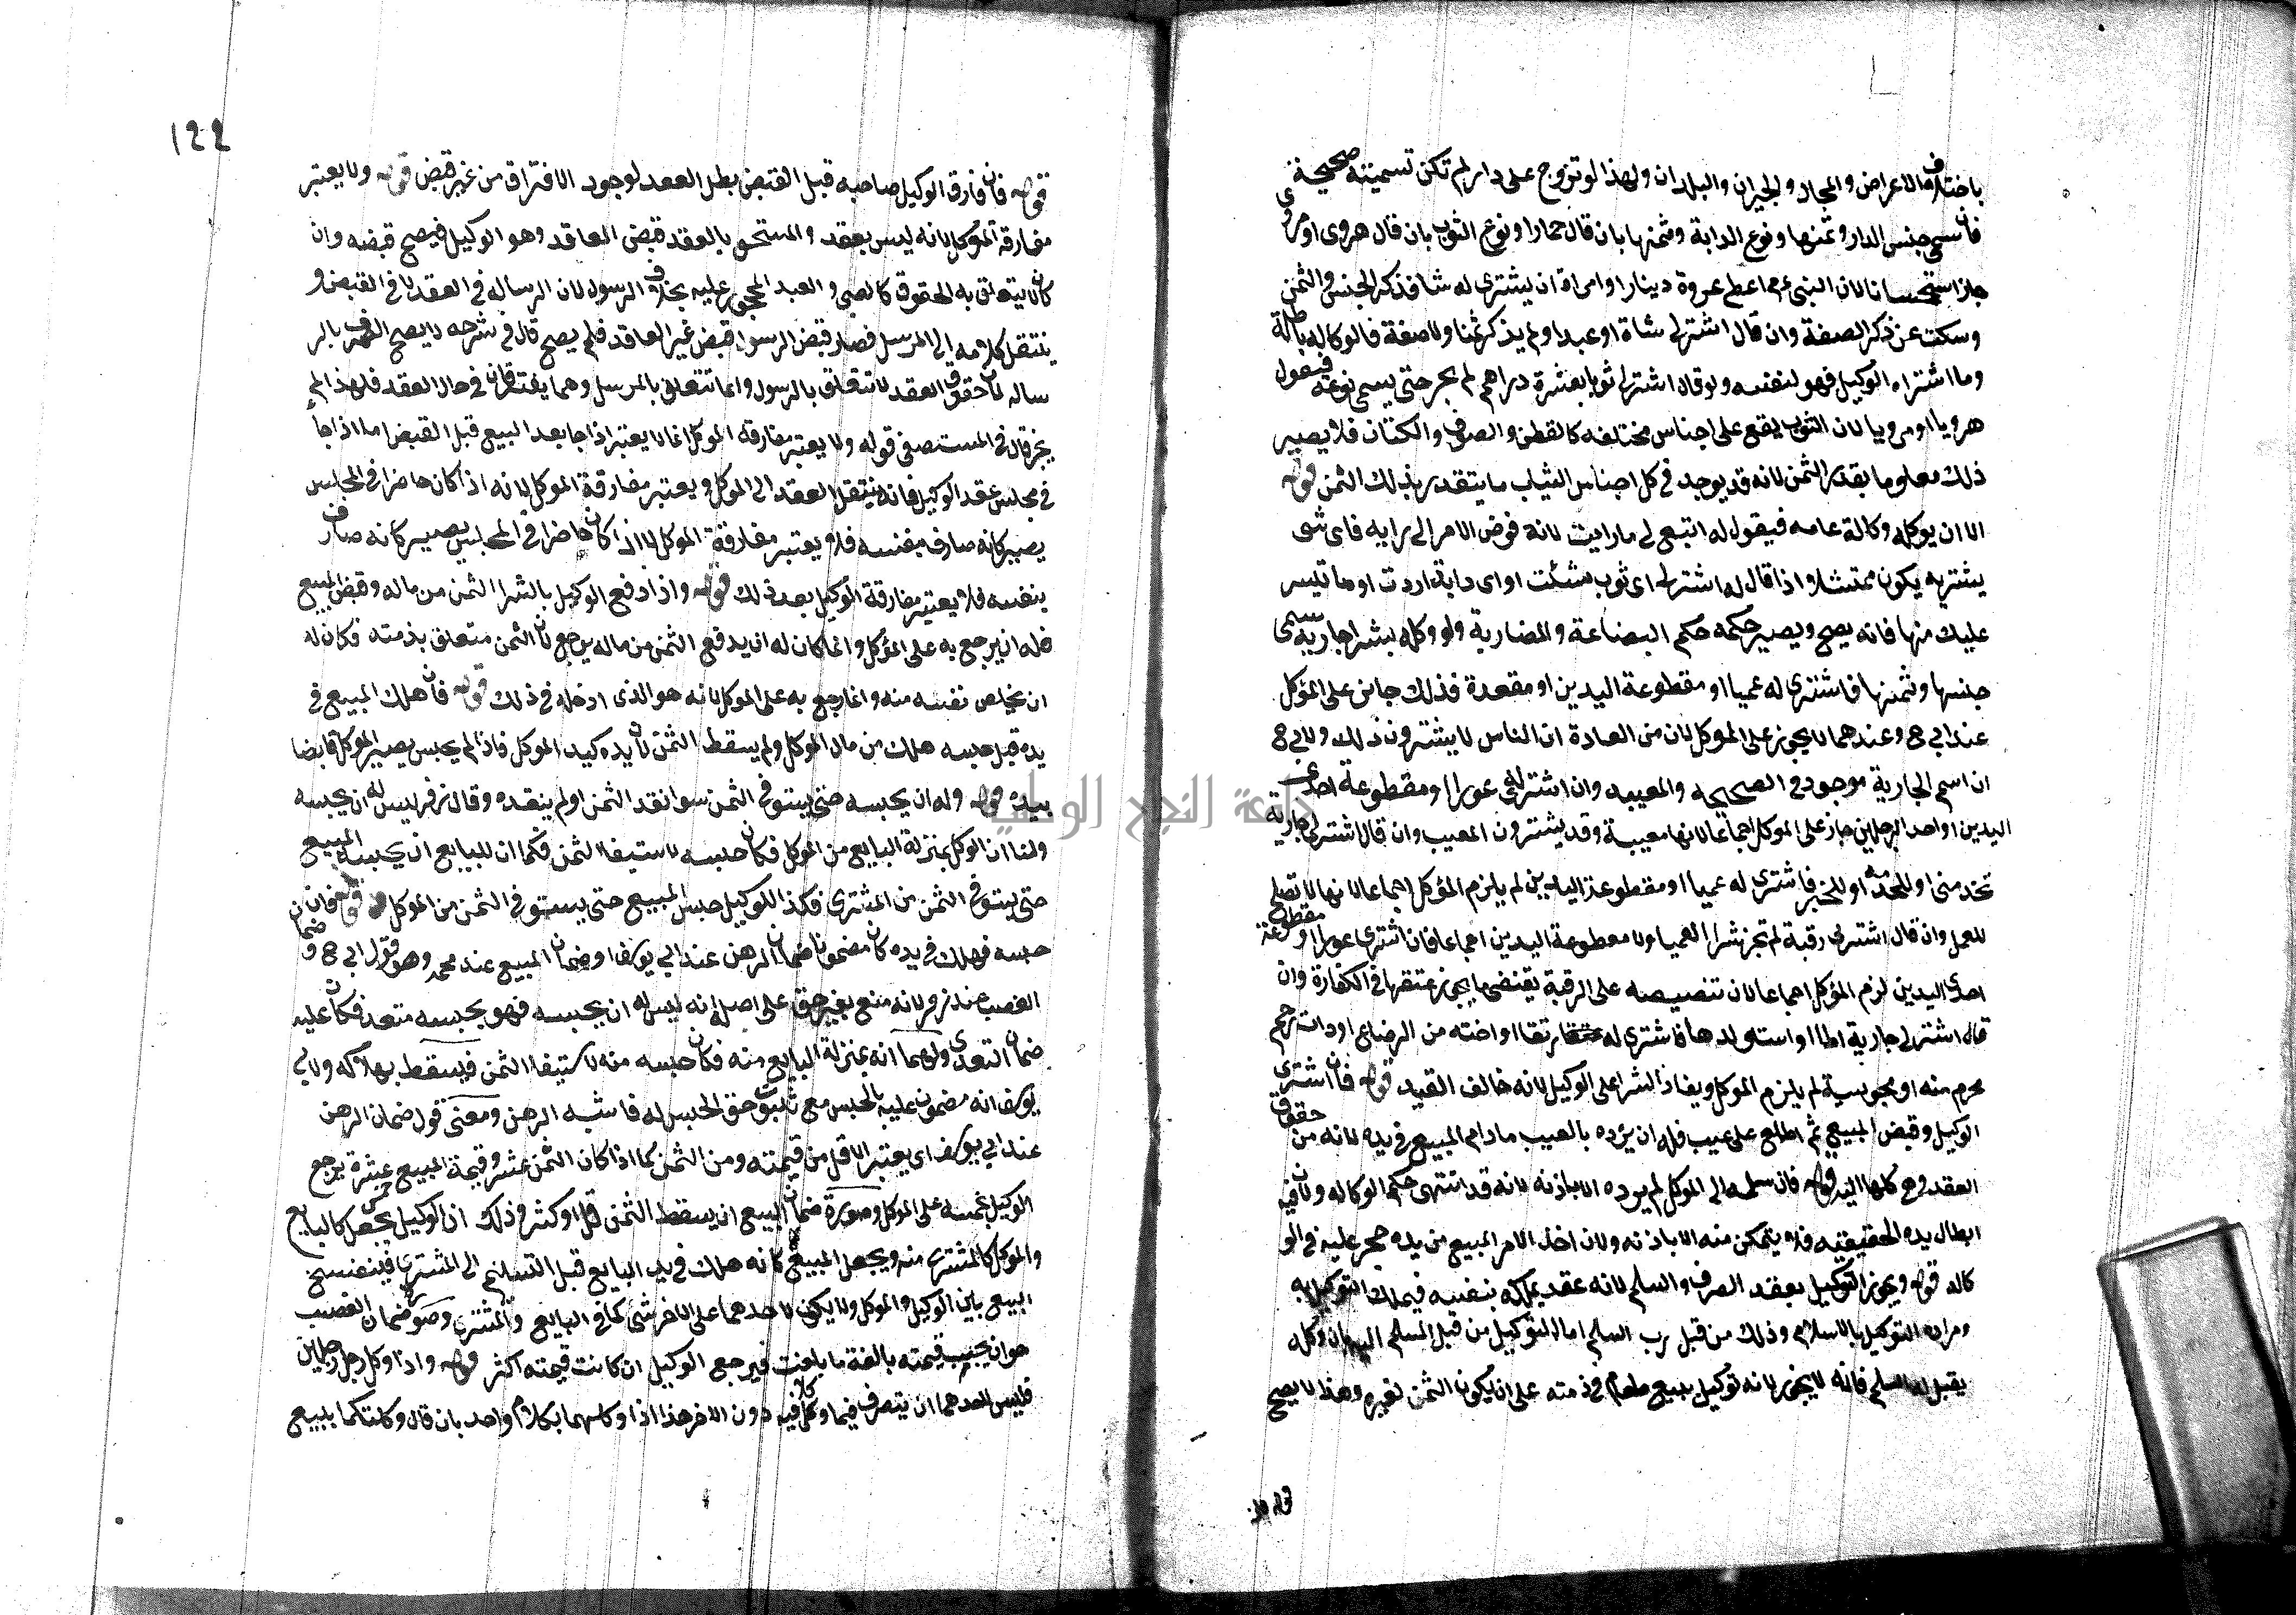 باختلاف الاعراض والمحال والجيران والبلدان ولهذا لو تزوج على دار لم تكن تسميته صحيحة
فان سمى جنس الدار وثمنها ونوع الدابة وثمنها بان قال حمارا ونوع الثوب بان قال هروى او مروى
جاز استحسانا لان النبى ءم اعطى عروة دينارا وامراة ان يشترى له شا فذكر الجنس والثمن
وسكت عن ذكر الصفة وان قال اشتر لى شاة او عبدا ولم يذكر ثمنا ولا صفة فالوكاله باطلة
وما اشتراه الوكيل فهو لنفسه ولو قال اشتر لى ثوبا بعشرة دراهم لم يجز حتى يسمى نوعه فيقول
هرويا او مرويا لان الثوب يقع على اجناس مختلفه كالقطن والصوف والكتان فلا يصير
ذلك معلوما بقدر الثمن لانه قد يوجد فى كل اجناس الثياب ما يتقدر بذلك الثمن قوله
الا ان يوكله وكالة عامه فيقول له ابتع لى ما رايت لانه فوض الامر الى رايه فاى شى
يشتريه يكون ممتثلا واذا قال له اشتر لى اى ثوب شئت او اى دابة اردت او ما تيسر
عليك منها فانه يصح ويصير حكمه حكم البضاعة والمضاربة ولو وكله بشرا جارية سمى
جنسها وثمنها فاشترى له عميا او مقطوعة اليدين او مقعدة فذلك جايز على المؤكل
عند ابى ح وعندهما لا يجوز على الموكل لان من العادة ان الناس لا يشترون ذلك ولابى ح
ان اسم الجارية موجود فى الصحيحه والمعيبه وان اشتر له عورا او مقطوعة احدى
اليدين او احد الرجلين جاز على الموكل اجماعا لانها معيبة وقد يشترون المعيب وان قال اشتر لى جارية
تخدمنى او للخدمه او للخبز فاشترى له عميا او مقطوعة اليدين لم يلزم المؤكل اجماعا لانها لا تصلح
للعمل وان قال اشتر لى رقبة لم تجز شرا العميا ولا مقطوعة اليدين اجماعا فان اشترى عورا او مقطوعة
احدى اليدين لزم المؤكل اجماعا لان تنصيصه على الرقبة يقتضى ما يجوز عتقها فى الكفارة وان
قال اشتر لى جارية اطاا او استولدها فاشترى له رتقا او اخته من الرضاع او ذات رحم
محرم منه او مجوسية لم يلزم الموكل ونفاذ الشرا على الوكيل لانه خالف القيد قوله فان اشترى
الوكيل وقبض المبيع ثم اطلع على عيب فله ان يرده بالعيب مادام المبيع فى يده لانه من حقوق
العقد وهى كلها اليه قوله فان سلمه الى الموكل لم يرده الا باذنه لانه قد انتهى حكم الوكاله ولان فيه
ابطال يده الحقيقيه فلا يتمكن منه الا باذنه ولان اخذ الامر المبيع من يده حجر عليه فى الو
كاله قوله ويجوز التوكيل بعقد الصرف والسلم لانه عقد يملكه بنفسه فيملك التوكيل به
ومراده التوكيل بالاسلام وذلك من قبل رب السلم اما التوكيل من قبل المسلم اليه وكله
يقبل له السلم فانه لا يجوز لانه توكيل ببيع طعام فى ذمته على ان يكون الثمن لغيره وهذا لا يصح
١٢٢
قوله فان فارق الوكيل صاحبه قبل القبض بطل العقد لوجود الافتراق من غير قبض قوله ولا يعتبر
مفارقة الموكل لانه ليس بعقد والمستحق بالعقد قبض العاقد وهو الوكيل فيصح قبضه وان
كان لا يتعلق به الحقوق كالصبى والعبد المحجور عليه بخلاف الرسول لان الرساله فى العقد لا فى القبض و
ينتقل كلامه الى المرسل فصار قبض الرسول قبض غير العاقد فلم يصح قال فى شرحه لا يصح الصرف بالر
ساله لان حقوق العقد لا تتعلق بالرسول وانما تتعلق بالمرسل وهما يفترقان فى حال العقد فلهذا لم
يجز قال فى المستصفى قوله ولا يعتبر مفارقه الموكل انما لا يعتبر اذا جا بعد البيع قبل القبض اما اذا جا
فى مجلس عقد الوكيل فانه ينتقل العقد الى الموكل ويعتبر مفارقة الموكل لانه اذا كان حاضرا فى المجلس
يصير كانه صارف بنفسه فلا يعتبر مفارقة الموكل لا اذا كان حاضرا فى المجلس يصير كانه صارف
بنفسه فلا يعتبر مفارقة الوكيل بعد ذلك قوله واذا دفع الوكيل بالشرا الثمن من ماله وقبض المبيع
فله ان يرجع به على المؤكل وانما كان له ان يدفع الثمن من ماله يرجع لان الثمن متعلق بذمته فكان له
ان يخلص نفسه منه وانما رجع به على الموكل لانه هو الذى ادخله فى ذلك قوله فان هلك المبيع فى
يده قبل حبسه هلك من مال الموكل ولم يسقط الثمن لان يده كيد الموكل فاذا لم يحبس يصير الموكل قابضا
بيده قوله وله ان يحبسه حتى يستوفى الثمن سوا نقد الثمن او لم ينقده وقال زفر ليس له ان يحبسه
ولنا ان الوكل بمنزلة البايع من الموكل فكان حبسه لاستيفا الثمن فكما ان للبايع ان يحبس المبيع
حتى يستوفى الثمن من المشترى فكذا للوكيل حبس المبيع حتى يستوفى الثمن من الموكل قوله فان
حبسه فهلك فى يده كان مضمونا ضمان الرهن عند ابى يوسف وضمان المبيع عند محمد وهو قول ابى ح وضمان
الغصب عند زفر لانه منع بغير حق على اصله انه ليس له ان يحبسه فهو بحبسه متعد فكان عليه
ضمان التعدى ولهما انه بمنزلة البايع منه فكان حبسه منه لاستيفا الثمن فيسقط بهلاكه ولابى
يوسف انه مضمون عليه بالحبس مع ثبوت حق الحبس له فاشبه الرهن ومعنى قول ضمان الرهن
عند ابى يوسف اى يعتبر الاقل من قيمته ومن الثمن كما اذا كان الثمن خمسة عشر وقيمة المبيع عشرة يرجع
الوكيل بخمسه على الموكل وصورة ضمان المبيع ان يسقط الثمن قل او كثر وذلك ان الوكيل يجعل كالبايع
والموكل كالمشترى منه ويجعل المبيع كانه هلك فى يد البايع قبل التسليم الى المشترى فينفسخ
البيع بين الوكيل والموكل ولا يكون لاحدهما على الاخر شى كما فى البايع والمشترى وصورة ضمان الغصب
هو ان يجب قيمته بالغة ما بلغت فيرجع الوكيل ان كانت قيمته اكثر قوله واذا وكل رجل رجلين
فليس لاحدهما ان يتصرف فيما وكلا فيه دون الاخر هذا اذا وكلهما بكلام واحد بان قال وكلتكما ببيع